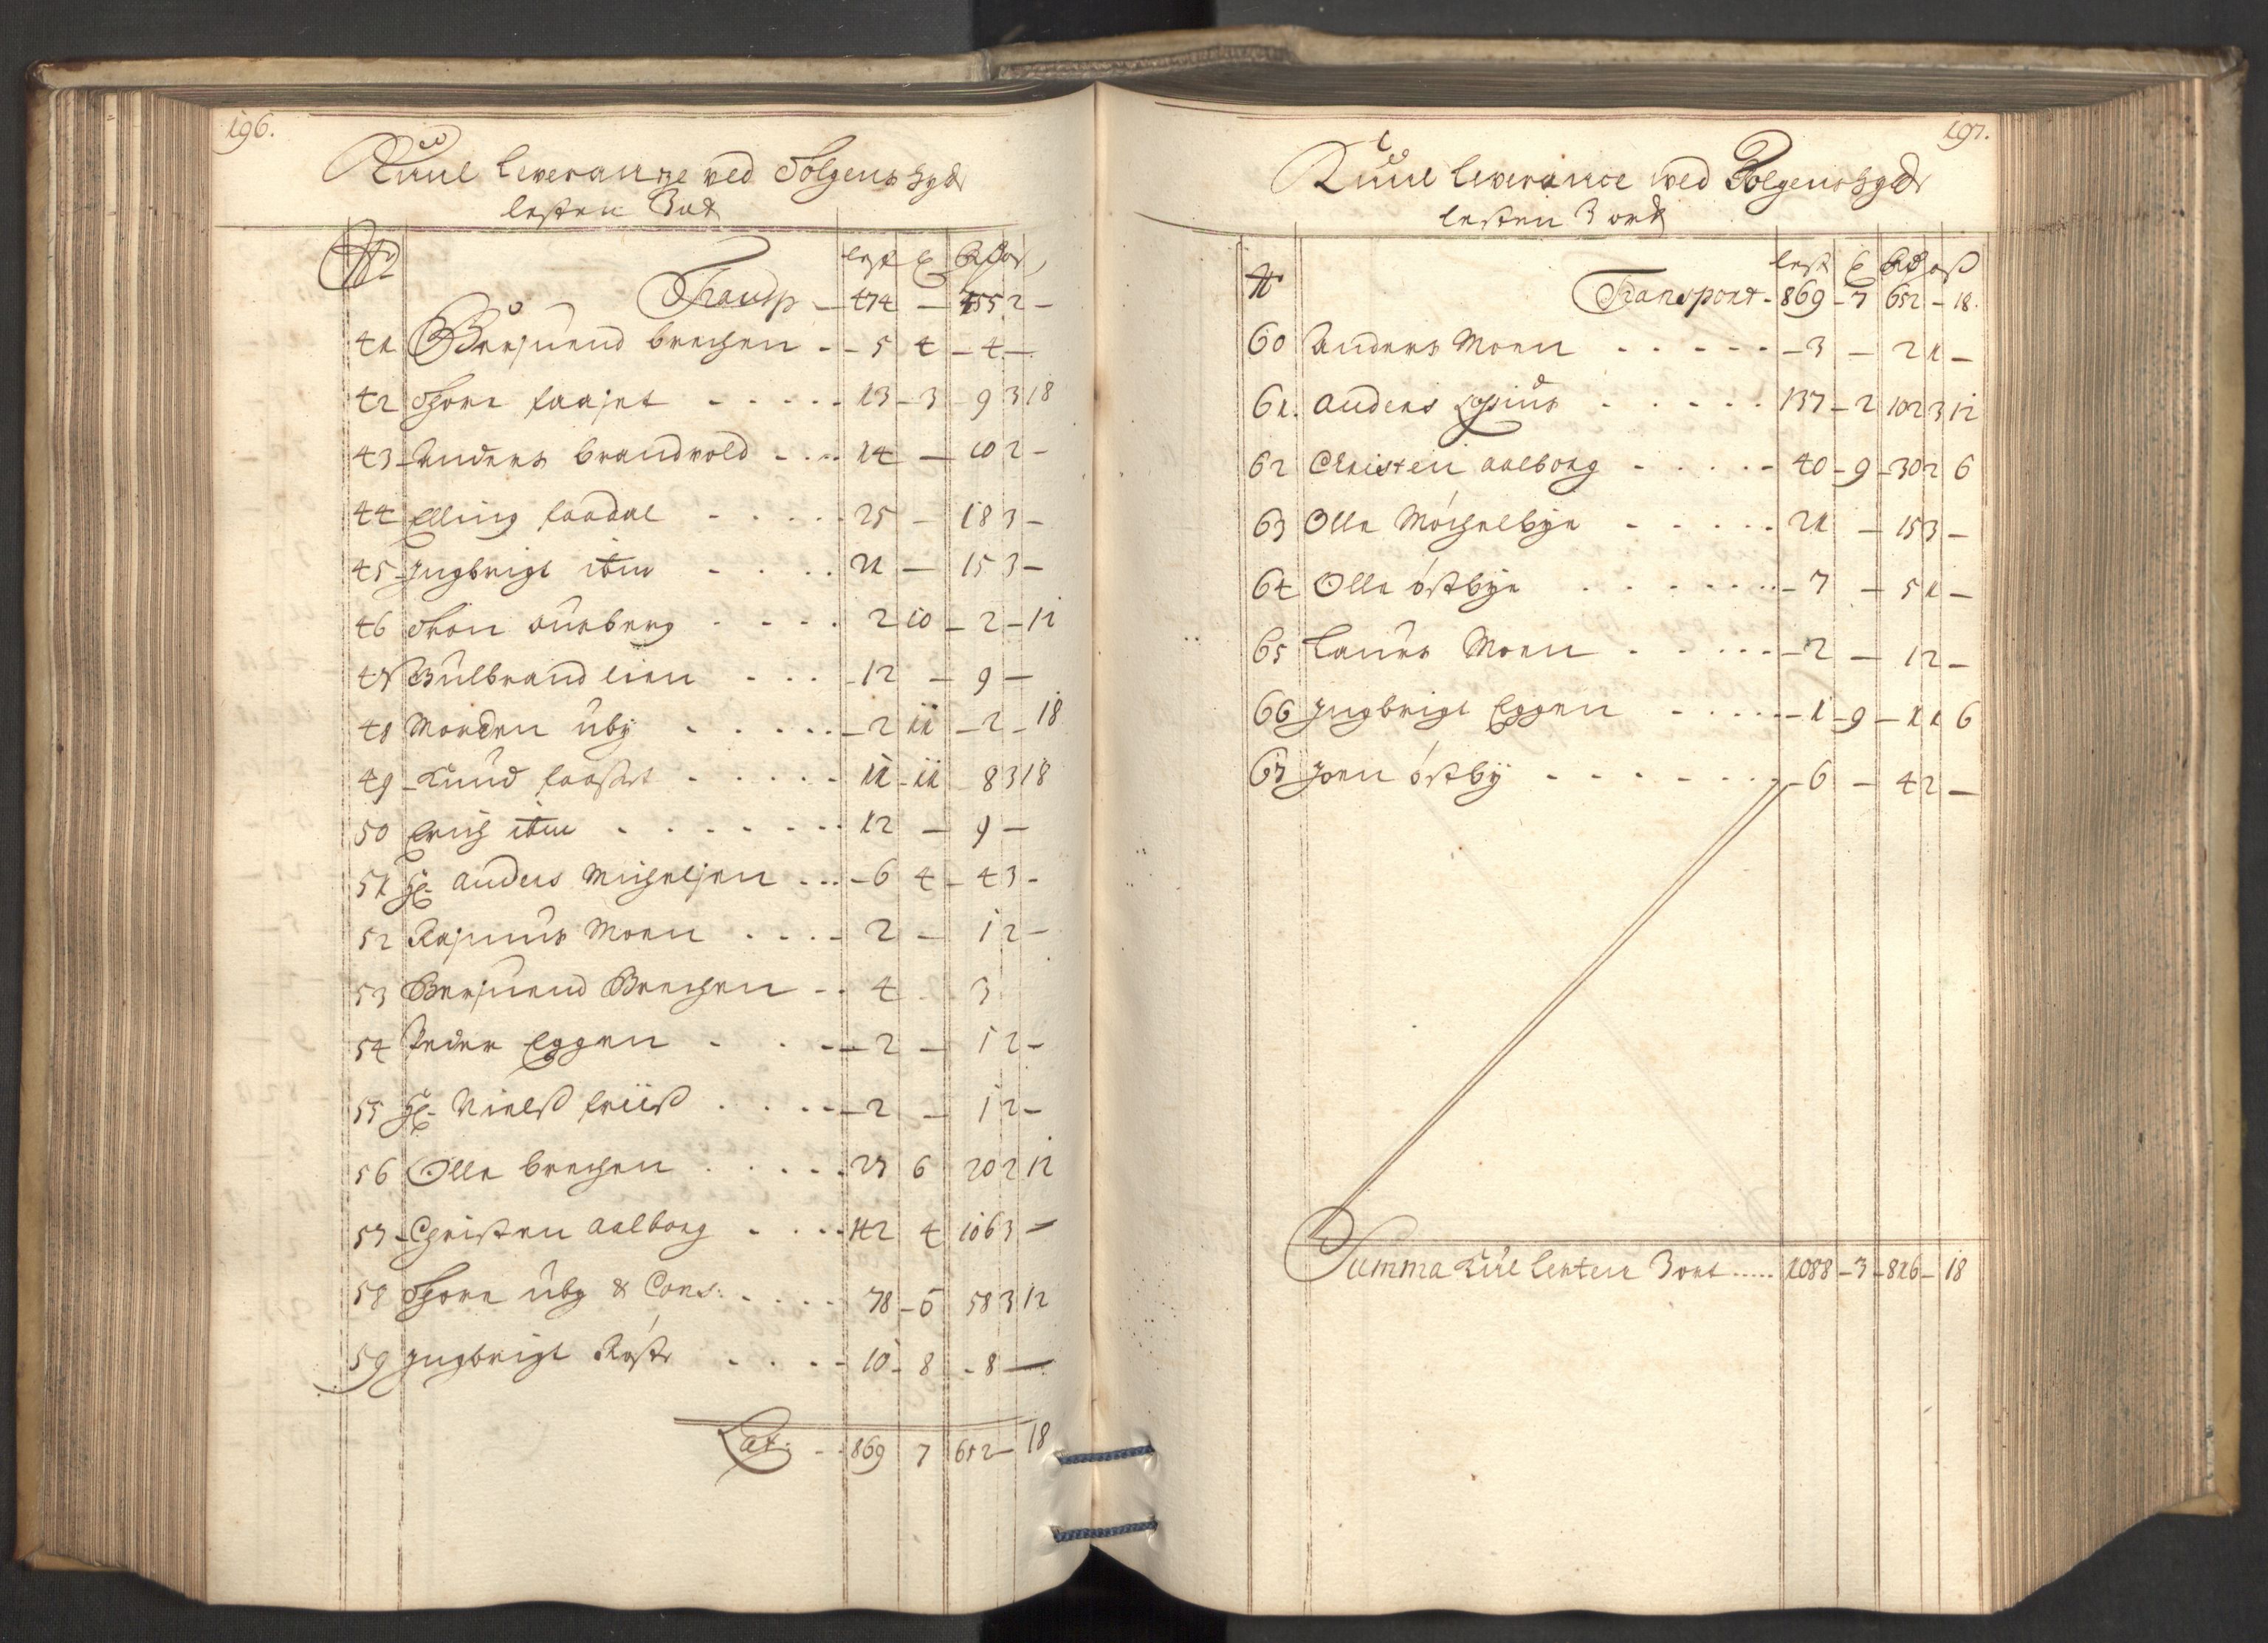 196.
Kuul leverantze ved Tolgens hytte
lesten 3 ort
No lest t Rd ort s
Transp – 474 – 355 2 –
41 Bersuend brechen - - 5 4 – 4 –
42 Thore faaset - - - - - 13 - 3 9 3 18
43 Anders brandvold - - - - 14 – 10 2 –
44 Elling faadal - - - - - 25 – 18 3 –
45 Ingbrigt itm - - - - 21 – 15 3 –
46 Sron aursberg - - - - 2 10 – 2 – 12
47 Gulbrand lien - - - - 12 – 9 –
48 Morten ûby - - - - - 2 11 – 2 – 18
49 Knud faaset - - - - - 11 - 11 8 3 18
50 Erich itm - - - - - - - 12 – 9 –
51 Hr. Anders Michelsen - - - 6 4 – 4 3 –
52 Rasmus Moen - - - - 2 – 1 2 –
53 Bersuend Brechen - - 4 3
54 Peder Eggen - - - - 2 – 1 2 –
55 Hr. Nielß friiß - - - - 2 – 1 2 –
56 Olle brechen - - - - - 27 6 20 2 12
57 Christen aalborg - - - - 142 4 106 3 –
58 Thore ûby & Cons: - - - - 78 - 6 58 3 12
59 Ingbrigt Røste - - - - 10 - 8 - 8 –
Lat: - - 869 7 652 – 18
197.
Kuul leverance ved Tolgens hytte
lesten 3 ort
No lest t Rd ort ß
Transport - 869 - 7 652 – 18.
60 Anders Moen - - - - - - 3 – 2 1 –
61. Anders - - - - - 137 - 2 102 3 12
62 Christen aalborg - - - - - 40 - 9 - 30 2 6
63 Olle Móchelbye - - - - - 21 – 15 3 –
64 Olle óstbye - - - - - - - 7 – 5 1 –
65 Laurs Moen - - - - - - 2 – 1 2 –
66 Ingbrigt Eggen - - - - - 1 - 9 – 1 1 6
67 Joen óstby - - - - - - - 6 – 4 2 –
Summa Kul lesten 3 ort ..... 1088 - 3 - 816 - 18